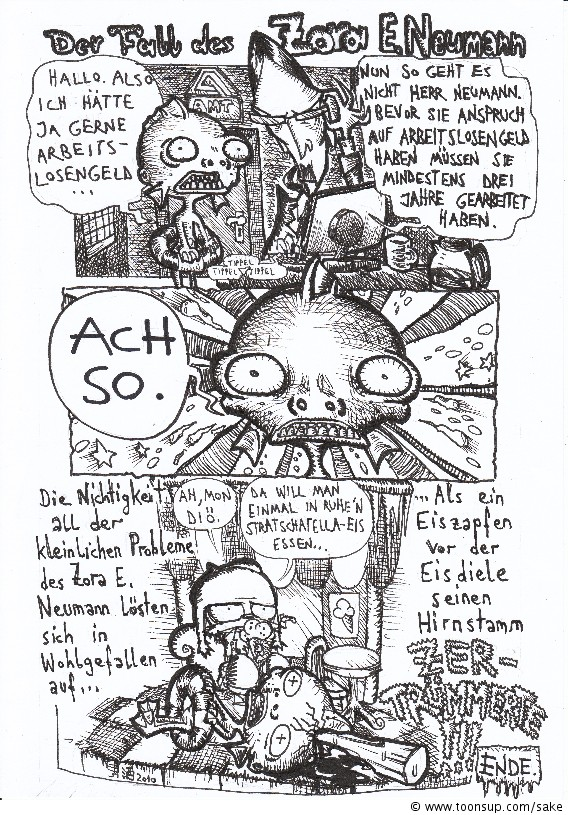 Der Fall des Zora E. Neumann
HALLO. ALSO
ICH HÄTTE
JA GERNE
ARBEITS-
LOSENGELD
...
AMT
NUN SO GEHT ES
NICHT HERR NEUMANN.
BEVOR SIE ANSPRUCH
AUF ARBEITSLOSENGELD
HABEN MÜSSEN SIE
MINDESTENS DREI
JAHRE GEARBEITET
HABEN.
TIPPEL
TIPPEL TIPPEL
ACH
SO.
Die Nichtigkeit
all der
kleinlichen Probleme
des Zora E.
Neumann lösten
sich in
Wohlgefallen
auf...
AH, MON
DIÖ.
DA WILL MAN
EINMAL IN RUHE'N
STRATSCHATELLA-EIS
ESSEN...
...Als ein
Eiszapfen
vor der
Eisdiele
seinen
Hirnstamm
ZER-
TRÜMMERTE
!!!
ENDE.
2010
© www.toonsup.com/sake